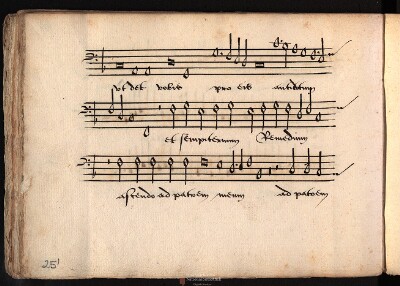 ut det vobis pro eis antidotum
et sempiternum Remedium
ascendo ad patrem meum ad patrem
25'